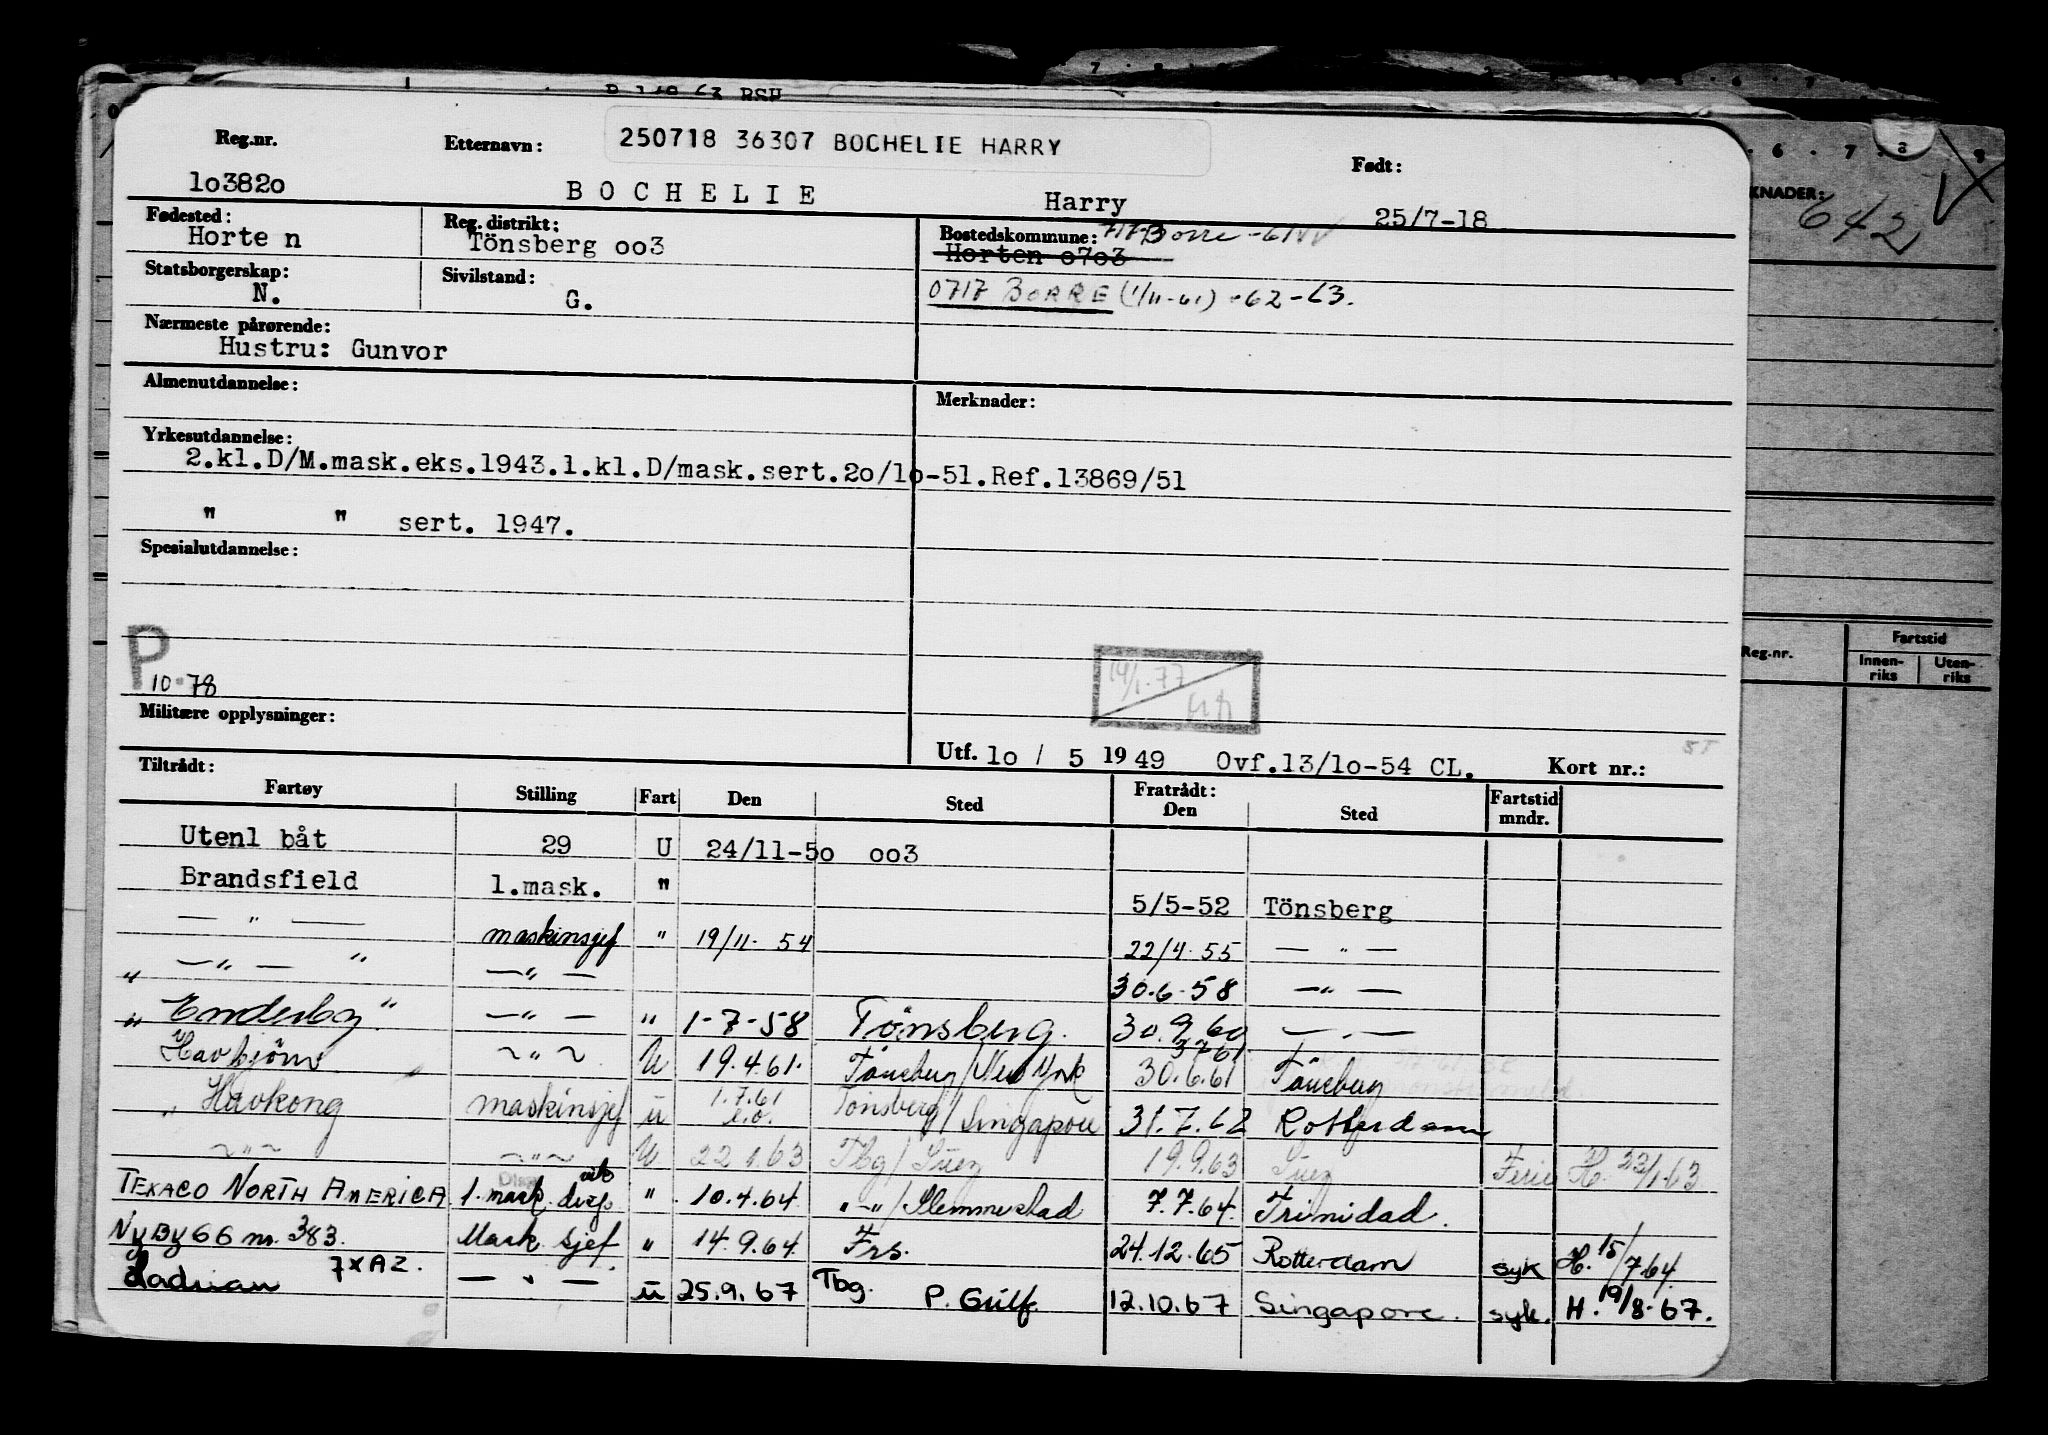 Reg.nr. Etternavn: 250718 36307 BOCHELIE HARRY Født:
1o382o BOCHELIE Harry 25/7-18
Fødested: Reg. distrikt: Bostedskommune: Borre
Horte n Tönsberg oo3 Horten o7o3
Statsborgerskap: Sivilstand:
N. G. 0717 BORRE (1/11-61) -62-63.
Nærmeste pårørende:
Hustru: Gunvor
Almenutdannelse: Merknader:
Yrkesutdannelse:
2.kl.D/M.mask.eks.1943.1.kl.D/mask.sert.2o/1o-51.Ref.13869/51
" " sert. 1947.
Spesialutdannelse:
P
10-78 14/1-77
Militære opplysninger:
Utf. 1o / 5 1949 Ovf.13/1o-54 CL. Kort nr.:
Tiltrådt: Fratrådt:
Fartøy Stilling Fart Den Sted Den Sted Fartstid mndr.
Utenl båt 29 U 24/11-5o oo3
Brandsfield 1.mask. " 5/5-52 Tönsberg
— " — maskinsjef " 19/11-54 22/4-55 — " —
" — " — " — " — 30.6-58 — " —
" Enderby " — " — " 1-7-58 Tönsberg. 30.9.60 — " —
Havbjörn ~ " ~ U 19.4.61. Tönsberg/New York 30.6.61 3761 Tönsberg
" Havkong maskinsjef u 1.7.61 Tönsberg/Singapore 31.7.62 Rotterdam
~ " ~ ~ " ~ U 22.1.63 Tbg/Suez 19.9.63 Suez Ferie H. 23/1-63
TEXACO NORTH AMERICA 1. mask " 10.4.64. " - " /Slemmestad 7.7.64. Trinidad.
NyBy66 nr. 383. Mask. sjef. " 14.9.64. Frs. 24.12.65 Rotterdam syk H. 15/7.64.
Ladrian 7XAZ. — " — u 25.9.67 Tbg. P. Gulf. 12.10.67 Singapore. syk. H. 19/8-67.
KNADER: 642
Reg.nr. Fartstid
Innen-riks Uten-riks